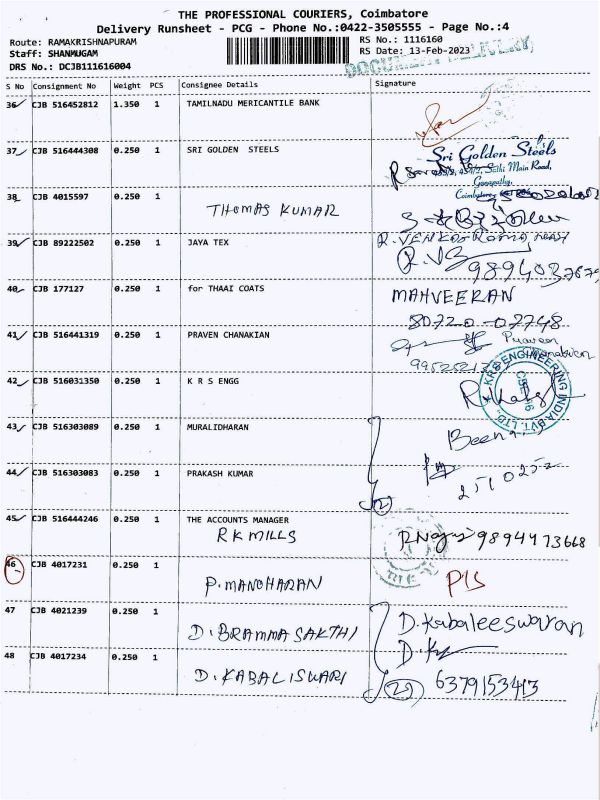 THE PROFESSIONAL COURIERS, Coimbatore
Delivery Runsheet - PCG - Phone No.:0422-3505555 - Page No.:4
Route: RAMAKRISHNAPURAM RS No.: 1116160
Staff: SHANMUGAM RS Date: 13-Feb-2023
DRS No.: DCJB111616004 DOCUMENT DELIVERY
S No Consignment No Weight PCS Consignee Details Signature
36 CJB 516452812 1.350 1 TAMILNADU MERICANTILE BANK
37 CJB 516444308 0.250 1 SRI GOLDEN STEELS Sri Golden Steels
Sathi Main Road,
Ganapathy,
38 CJB 4015597 0.250 1 THOMAS KUMAR
39 CJB 89222502 0.250 1 JAYA TEX
40 CJB 177127 0.250 1 for THAAI COATS MAHVEERAN
80720-07748
41 CJB 516441319 0.250 1 PRAVEN CHANAKIAN Praveen
42 CJB 516031350 0.250 1 K R S ENGG KRS ENGINEERING INDIA PVT. LTD.
CBE - 6
43 CJB 516303089 0.250 1 MURALIDHARAN Beena
44 CJB 516303083 0.250 1 PRAKASH KUMAR 2510252
45 CJB 516444246 0.250 1 THE ACCOUNTS MANAGER
RK MILLS
46 CJB 4017231 0.250 1 P. MANOHARAN
47 CJB 4021239 0.250 1 D. BRAMMA SAKTHI D. Kabaleeswaran
48 CJB 4017234 0.250 1 D. KABALISWARI 6379153413